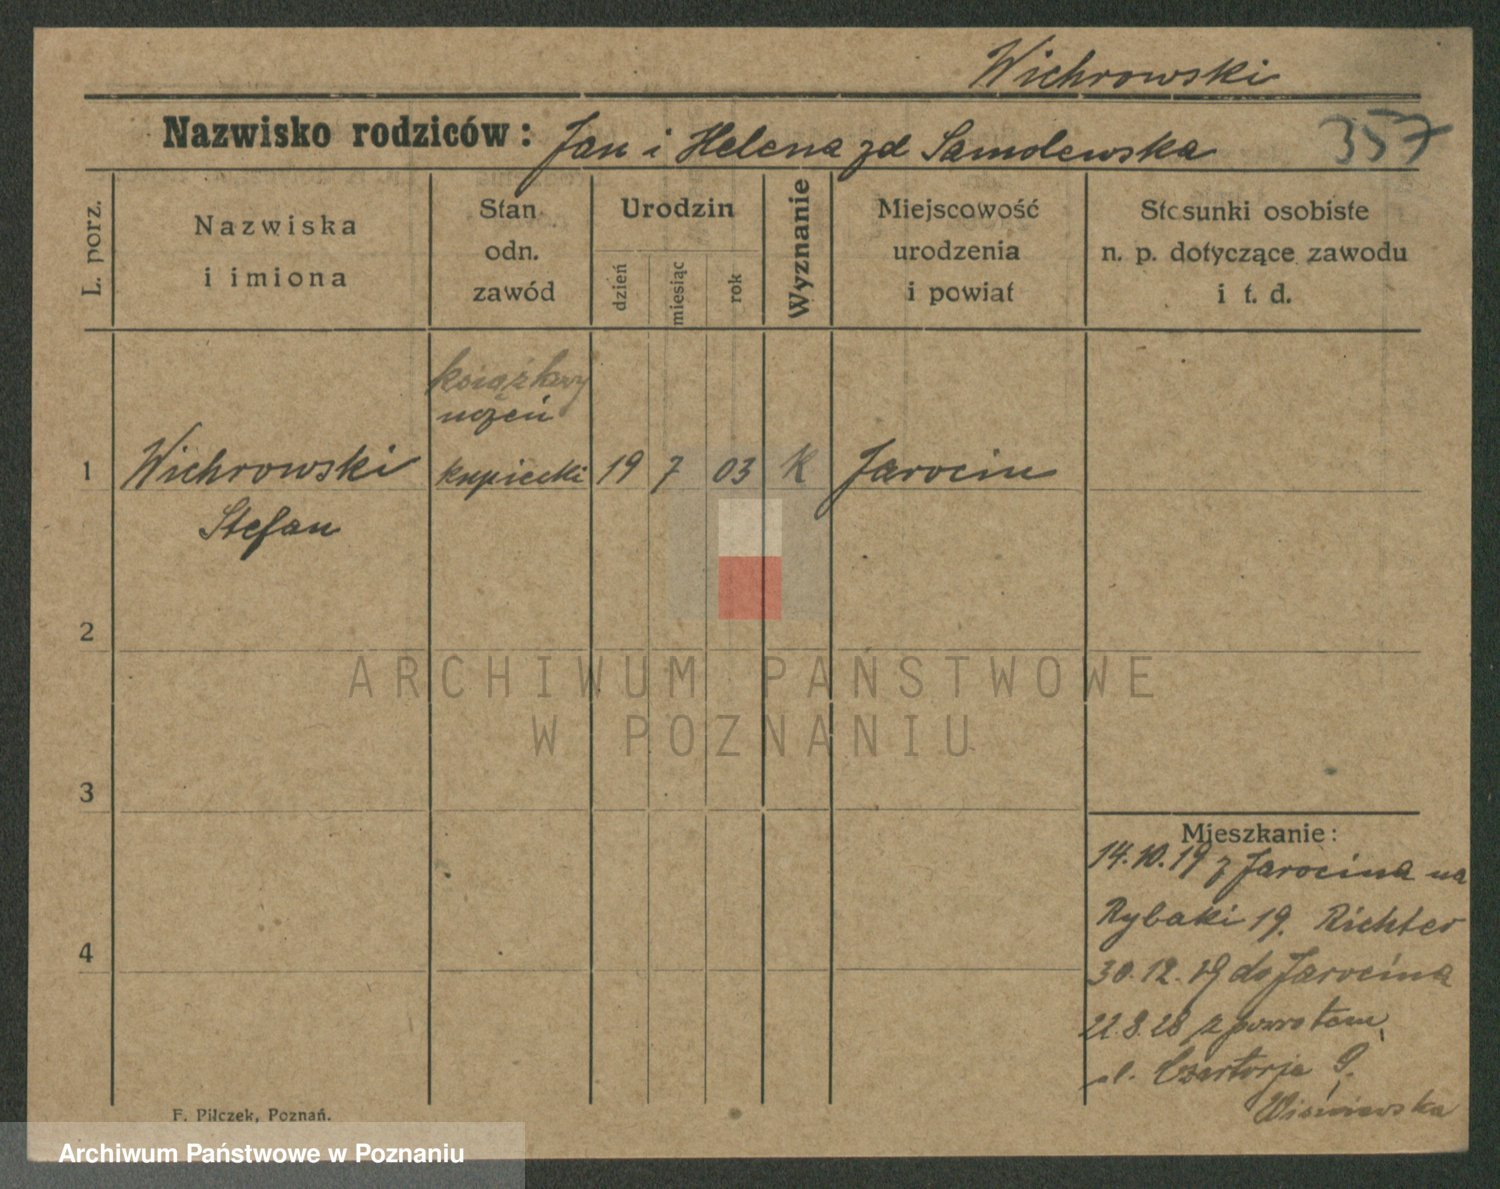 Wichrowski
Nazwisko rodziców: Jan i Helena zd Samolewska
357
L. porz.
Nazwiska
i imiona
Stan
odn.
zawód
Urodzin
dzień
miesiąc
rok
Wyznanie
Miejscowość
urodzenia
i powiat
Stosunki osobiste
n. p. dotyczące zawodu
i t. d.
książkowy
uczeń
1 Wichrowski kupiecki 19 7 03 K Jarocin
Stefan
2
3
4
ARCHIWUM PAŃSTWOWE
W POZNANIU
Mieszkanie:
14.10.19 z Jarocina na
Rybaki 19. Richter
30.12.19 do Jarocina
22.8.28 z powrotem
ul. Czartorja 9.
Wiśniewska
F. Pilczek, Poznań.
Archiwum Państwowe w Poznaniu